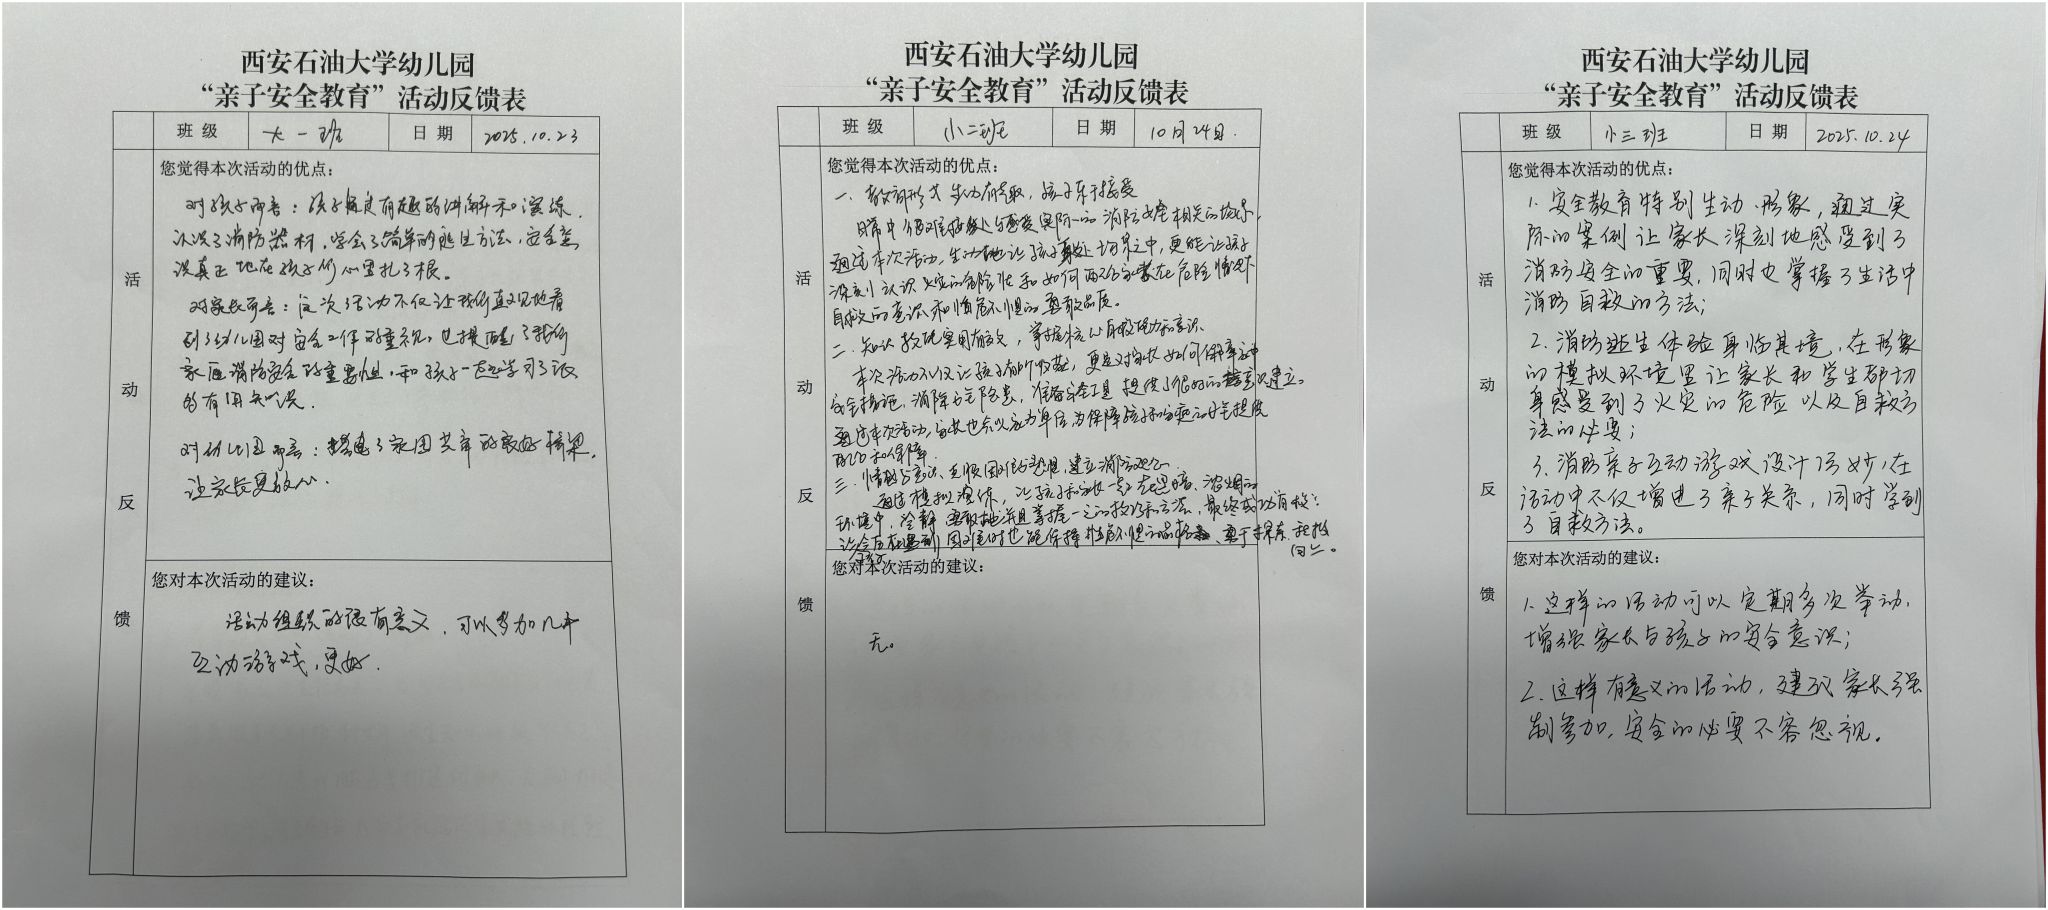 西安石油大学幼儿园
“亲子安全教育”活动反馈表
班级 大一班 日期 2025.10.23
活动反馈
您觉得本次活动的优点:
对孩子而言:孩子通过有趣的讲解和演练,
认识了消防器材,学会了简单的逃生方法,安全意
识真正地在孩子们心里扎了根。
对家长而言:这次活动不仅让我们直观地看
到了幼儿园对安全工作的重视,也提醒了我们
家庭消防安全的重要性,和孩子一起学习了很
多有用知识.
对幼儿园而言:搭建了家园共育的良好桥梁,
让家长更放心.
您对本次活动的建议:
活动组织的很有意义,可以多加几个
互动游戏,更好.
西安石油大学幼儿园
“亲子安全教育”活动反馈表
班级 小二班 日期 10月24日.
活动反馈
您觉得本次活动的优点:
一、教育形式生动有趣,孩子乐于接受
日常中很难接触与感受实际的消防安全相关的场景,
通过本次活动,生动地让孩子身处场景之中,更能让孩子
深刻认识火灾的危险性和如何在危险情况下
自救的意识和临危不惧的勇敢品质。
二、知识教授实用有意义,掌握核心自救能力和意识.
本次活动不仅让孩子有所收获,更是对家长如何保障家中
安全措施,消除安全隐患,准备安全工具提供了很好的意识建立。
通过本次活动,家长也会以家为单位为保障孩子和家庭的安全提供
和保障.
三、情感与意识,克服困难恐惧,建立消防观念.
通过模拟演练,让孩子和家长一起在黑暗、浓烟的
环境中,冷静勇敢地并且掌握一定的救助和方法,最终成功自救;
让孩子在遇到困难时也能保持临危不惧的品格、勇于探索
您对本次活动的建议:
无。
西安石油大学幼儿园
“亲子安全教育”活动反馈表
班级 小三班 日期 2025.10.24
活动反馈
您觉得本次活动的优点:
1.安全教育特别生动、形象,通过实
际的案例让家长深刻地感受到了
消防安全的重要,同时也掌握了生活中
消防自救的方法;
2.消防逃生体验身临其境,在形象
的模拟环境里让家长和学生都切
身感受到了火灾的危险以及自救方
法的必要;
3.消防亲子互动游戏设计巧妙,在
活动中不仅增进了亲子关系,同时学到
了自救方法。
您对本次活动的建议:
1.这样的活动可以定期多次举动,
增强家长与孩子的安全意识;
2.这样有意义的活动,建议家长强
制参加,安全的必要不容忽视。